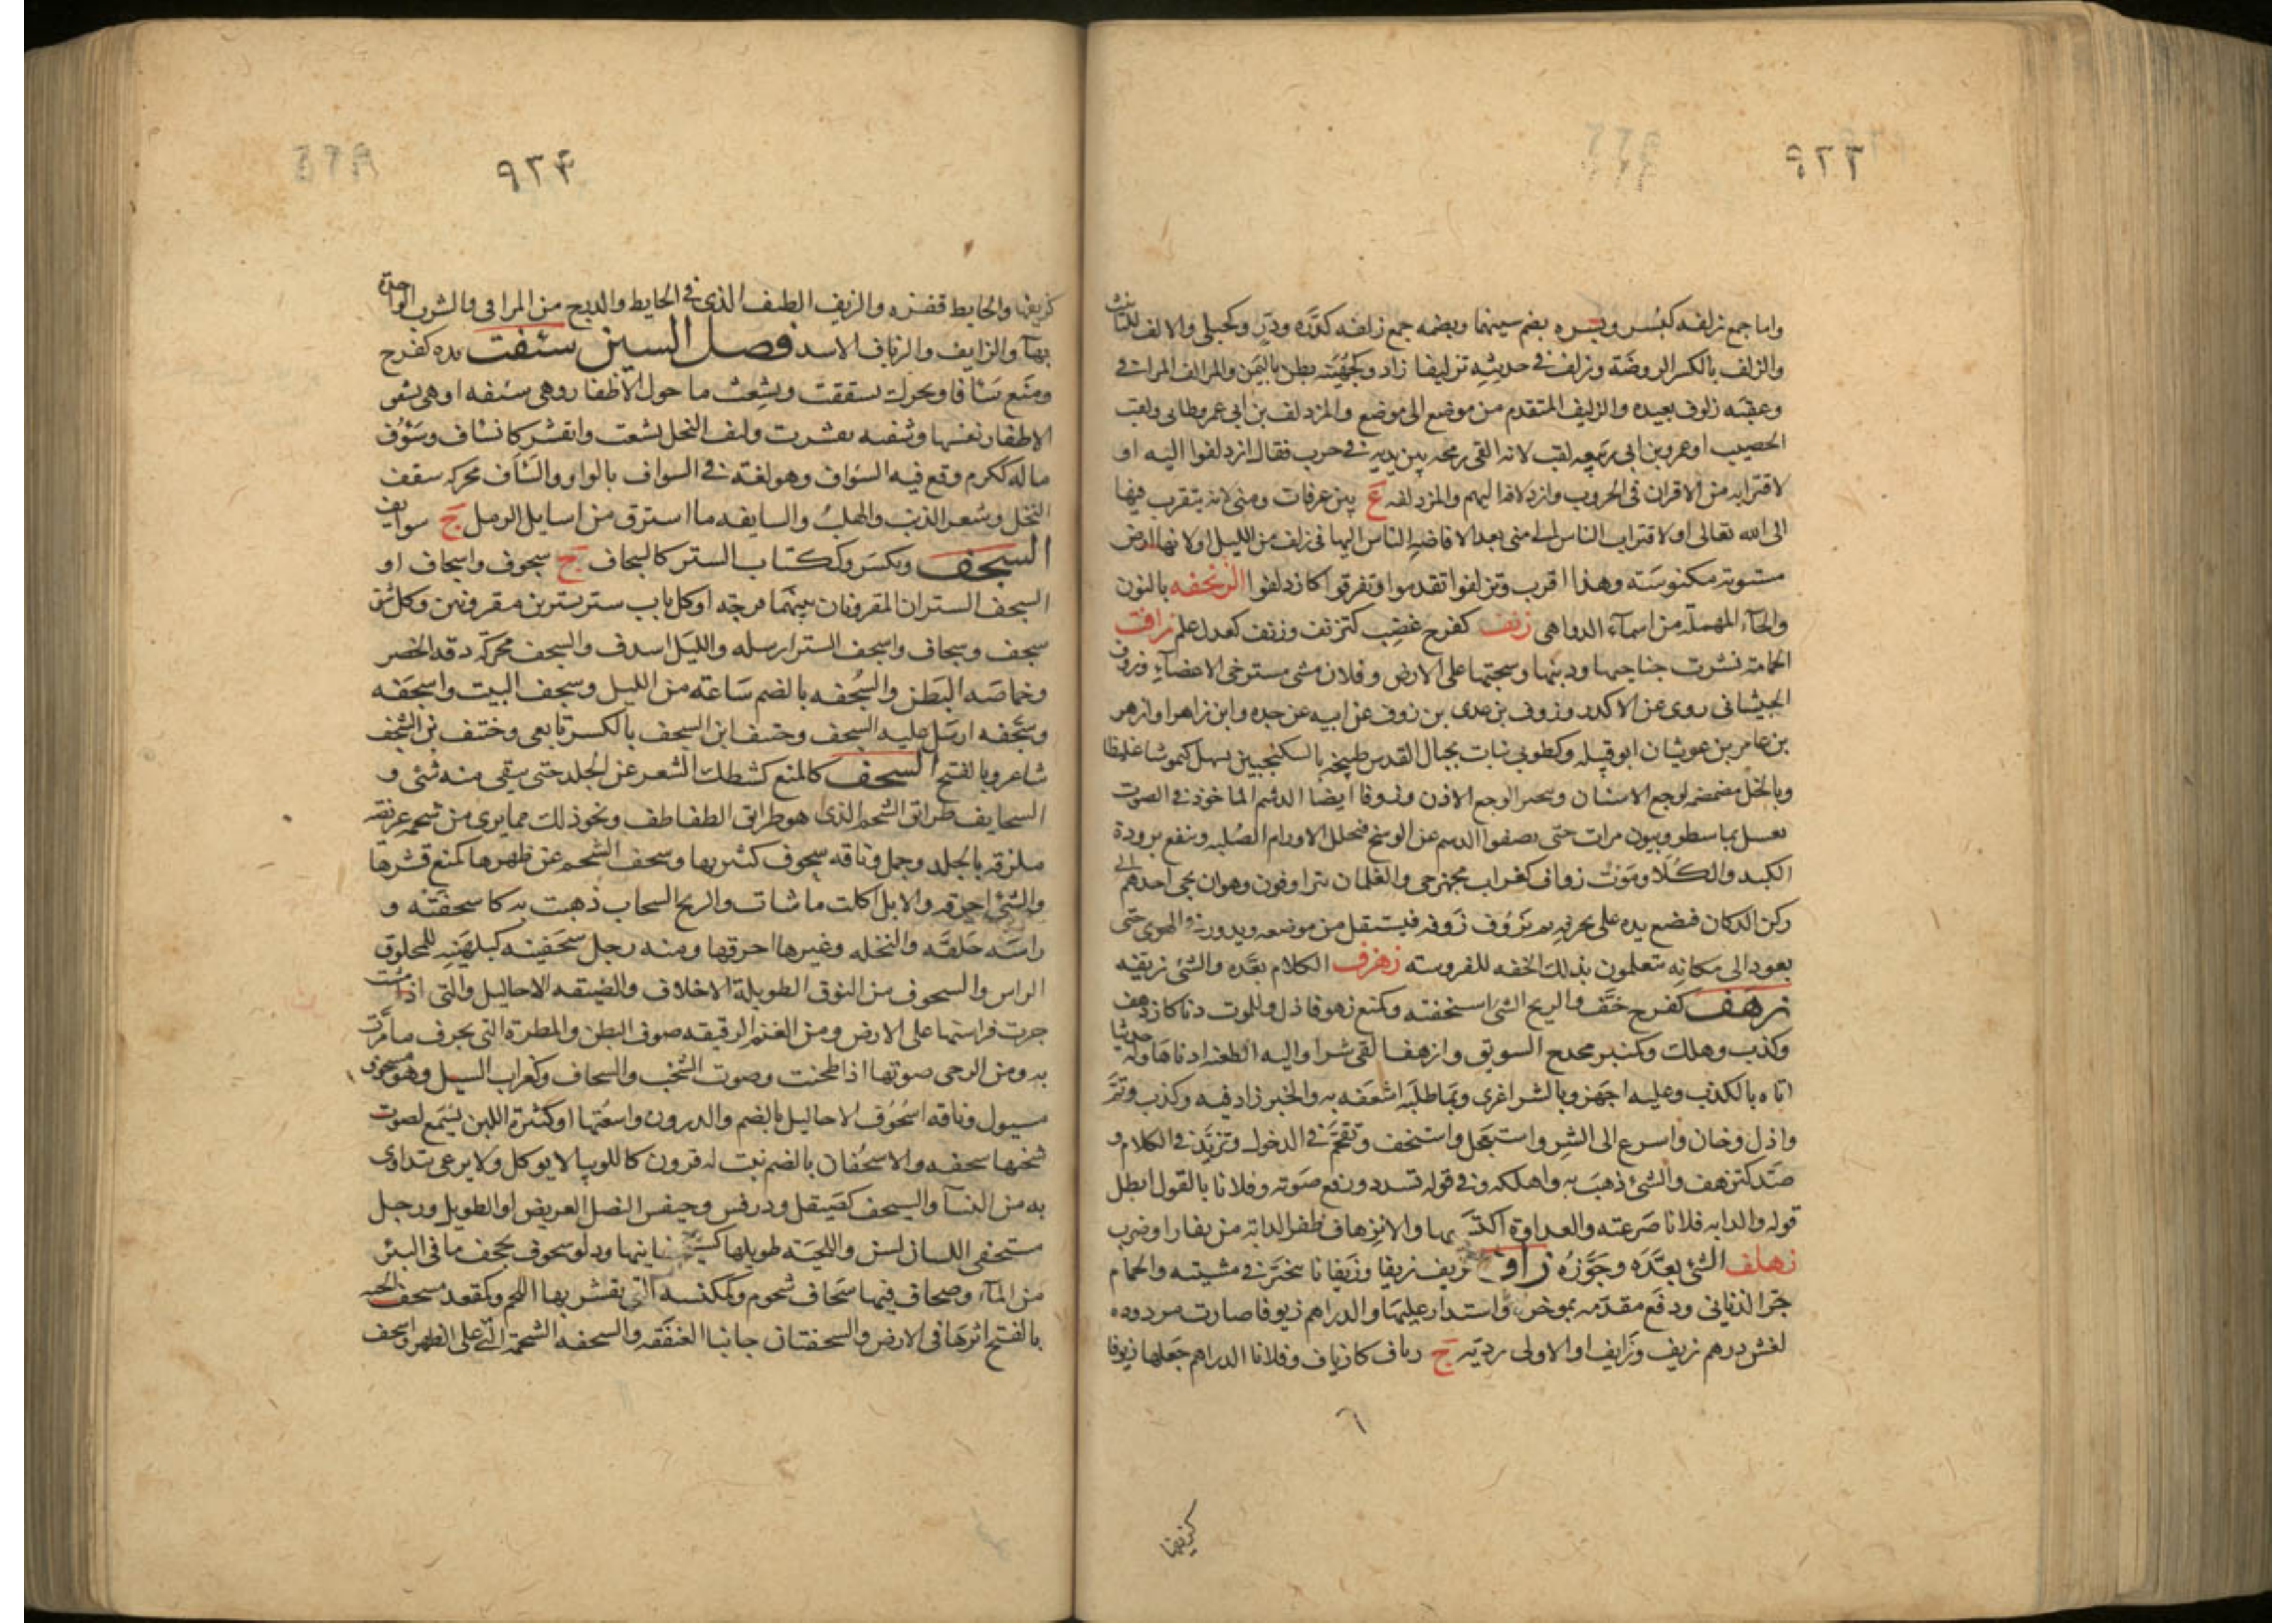 ٩٢٣
واما جمع زلفه كبسر وبسره بضم سينهما وبضمه جمع زلفه كدره ودر وكحبلى والالف للتانيث
والزلف بالكسر الروضة وزلف في حديثه تزليفا زاد وكجهينه بطن باليمن والمزالف المراقى
وعقبه زلوف بعيده والزليف المتقدم من موضع الى موضع والمزدلف بن ابي عمرو طائى ولقب
الخصيب او عمرو بن ابى ربيعه لقب لانه القى رمحه بين يديه في حرب فقال ازدلفوا اليه او
لاقترابه من الاقران في الحروب وازدلافه اليهم والمزدلفه ع بين عرفات ومنى لانه يتقرب فيها
الى الله تعالى او لاقتراب الناس الى منى بعد الافاضه الناس اليها في زلف من الليل او لانها ارض
مستويه مكنوسته وهذا اقرب وتزلفوا تقدموا وتفرقوا كازدلفوا الزنحفه بالنون
والحاء المهمله من اسماء الدواهى زنف كفرح غضب كتزنف وزنف كعدل علم زافت
الحمامة نشرت جناحيها وذنبها وسحبتها على الارض وفلان مشى مسترخى الاعضاء وزوف
الجيشانى روى عن الاكدر وزوف بن عدى بن زوف عن ابيه عن جده وابن زاهر او ازهر
بن عامر بن عوبثان ابو قبيله وكطوبى نبات بجبال القدس طبيخه بالسكنجبين يسهل كيموسا غليظا
وبالخل مضمضه لوجع الاسنان وبخر الوجع الاذن وزوفا ايضا الدسم الماخوذ في الصوت
يغسل بما سطروبيون مرات حتى يصفوا الدسم عن الوسخ فيحلل الاورام الصلبه وينفع برودة
الكبد والكلا وموت زواف كغراب مجهز وحى والغلمان يتزاوفون وهو ان يجى احدهم الى
ركن الدكان فيضع يده على حرفه ثم يزوف زوفه فيستقل من موضعه ويدور في الهوى حتى
يعود الى مكانه يتعلمون بذلك الخفه للفروسته زهزف الكلام نفده والشئ زيفه
زهف كفرح خف والريح الشئ استخفته وكمنع زهوفا ذل وللموت دنا كازدهف
وكذب وهلك وكمنبر مجدح السويق وازهف القى شرا واليه الطعنه ادناها وله حديثا
اتاه بالكذب وعليه اجهز وبالشر اغرى وبما طلبه اسعفه به والخبر زاد فيه وكذب ونم
واذل وخان واسرع الى الشر واستعجل واستخف وتقحم في الدخول وتزيد في الكلام و
صد كتزهف والشئ ذهب به واهلكه وفي قوله تشدد ورفع صوته وفلانا بالقول ابطل
قوله والدابه فلانا صرعته والعداوة اكتسبها والانزهاف طفر الدابة من نفار او ضرب
زهلف الشئ نفده وجوزه زاف يزيف زيفا وزيفانا تبختر في مشيته والحمام
جر الذنابى ودفع مقدمه بموخره واستدار عليها والدراهم زيوفا صارت مردوده
لغش درهم زيف وزايف او الاولى رديه ج زياف كازياف وفلانا الدراهم جعلها زيوفا
٦
كزيفها
٩٢٤
كزيفها والحايط قفزه والزيف الطنف الذى في الحايط والدرج من المراقى والشرف الواحدة
بهاء والزايف والزياف الاسد فصل السين سئفت يده كفرح
ومنع سئافا ويحرك تشققت وتشعث ما حول الاظفار وهى سئفه او هى تشقق
الاظفار نفسها وشفته تقشرت وليف النخل تشعث وانقشر كانساف وسؤف
ماله ككرم وقع فيه السؤاف وهو لغة في السواف بالواو والسأف محركه سعف
النخل وشعر الذنب والهلب والسايفه ما استرق من اسايل الرمل ج سوايف
السجف ويكسر وككتاب الستر كالسجاف ج سجوف واسجاف او
السجف الستران المقرونان بينهما فرجه او كل باب ستر بسترين مقرونين وكل شق
سجف وسجاف واسجف الستر ارسله والليل اسدف والسجف محركه دقه الخصر
وخماصه البطن والسجفه بالضم ساعة من الليل وسجف البيت واسجفه
وسجفه ارسل عليه السجف وحنيف ابن السجف بالكسر تابعى وحنتف بن السجف
شاعر وبالفتح السحف كالمنع كشطك الشعر عن الجلد حتى يبقى منه شئ و
السحايف طرائق الشحم الذى هو طرائق الطفاطف ونحو ذلك مما يرى من شحمه عريضه
ملزقه بالجلد وجمل وناقه سحوف كثيرتها وسحف الشحم عن ظهرها كمنع قشرها
والشئ احرقه والابل اكلت ما شات والريح السحاب ذهبت به كاسحفته و
راسه حلقه والنخله وغيرها احرقها ومنه رجل سحفنيه كبلهنيه للمحلوق
الراس والسحوف من النوق الطويلة الاخلاف والضيقه الاحاليل والتى اذا مشت
جرت فراسنها على الارض ومن الغنم الرقيقه صوف البطن والمطرة التى تجرف ما مرت
به ومن الرحى صوتها اذا طحنت وصوت الشخب والسحاف وكغراب السيل وهو مسحوف
سيول وناقه اسحوف الاحاليل بالضم والدرون واسعتها او كثيرة اللبن يسمع لصوت
شخبها سحفه والاسحفان بالضم نبت له قرون كاللوبيا لا يوكل ولا يرعى يتداوى
به من النسا والسيحف كصيقل ودرفس وحيفس النصل العريض او الطويل ورجل
سيحفى اللسان لسن واللحية طويلها كسيحفانيها ودلو سحوف يجحف ما في البئر
من الماء وصحاف فيها سحاف شحوم وكمكنسه التى يقشر بها اللحم وكمقعد مسحف الحيه
بالفتح اثرها في الارض والسحفتان جانبا العنفقه والسحفه الشحمة التى على الظهر واسحف